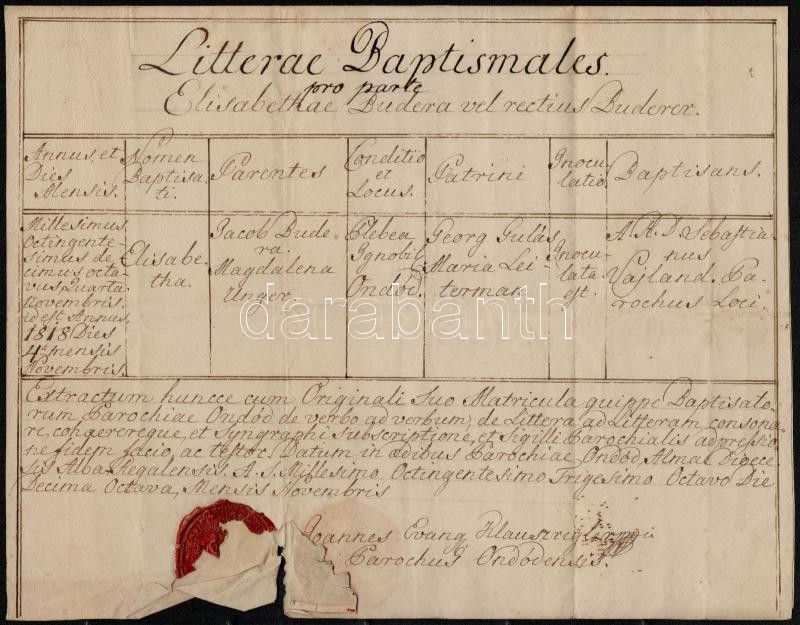 Litterae Baptismales.
pro parte
Elisabethae Budera vel rectius Buderer.
Annus, et
Dies
Mensis.
Nomen
Baptisa-
ti.
Parentes
Conditio
et
Locus.
Patrini
Inocu-
latio.
Baptisans.
Millesimus
Octingente-
simus de-
cimus octa-
vus Quarta
Novembris.
id est Annus.
1818 Dies
4a mensis
Novembris.
Elisabe-
tha.
Jacob Bude-
ra.
Magdalena
Unger
Plebea
Ignobil
Ondód.
Georg Gulás
Maria Lei-
terman
Inocu-
lata
est.
A. R. D. Sebastia-
nus
Vajland. Pa-
rochus Loci
Extractum huncce cum Originali Suo Matricula quippe Baptisato-
rum Parochiae Ondód de verbo ad verbum, de Littera ad Litteram consona-
re, cohaerereque, et Syngraphi Subscriptione, et Sigilli Parochialis adpressio-
ne fidem facio, ac testor. Datum in aedibus Parochiae Ondód, Almae Dioece
sis Alba-Regalensis. A. S. Millesimo Octingentesimo Trigesimo Octavo Die
Decima Octava, Mensis Novembris
Joannes Evang.
Parochus Ondódensis.
darabanth